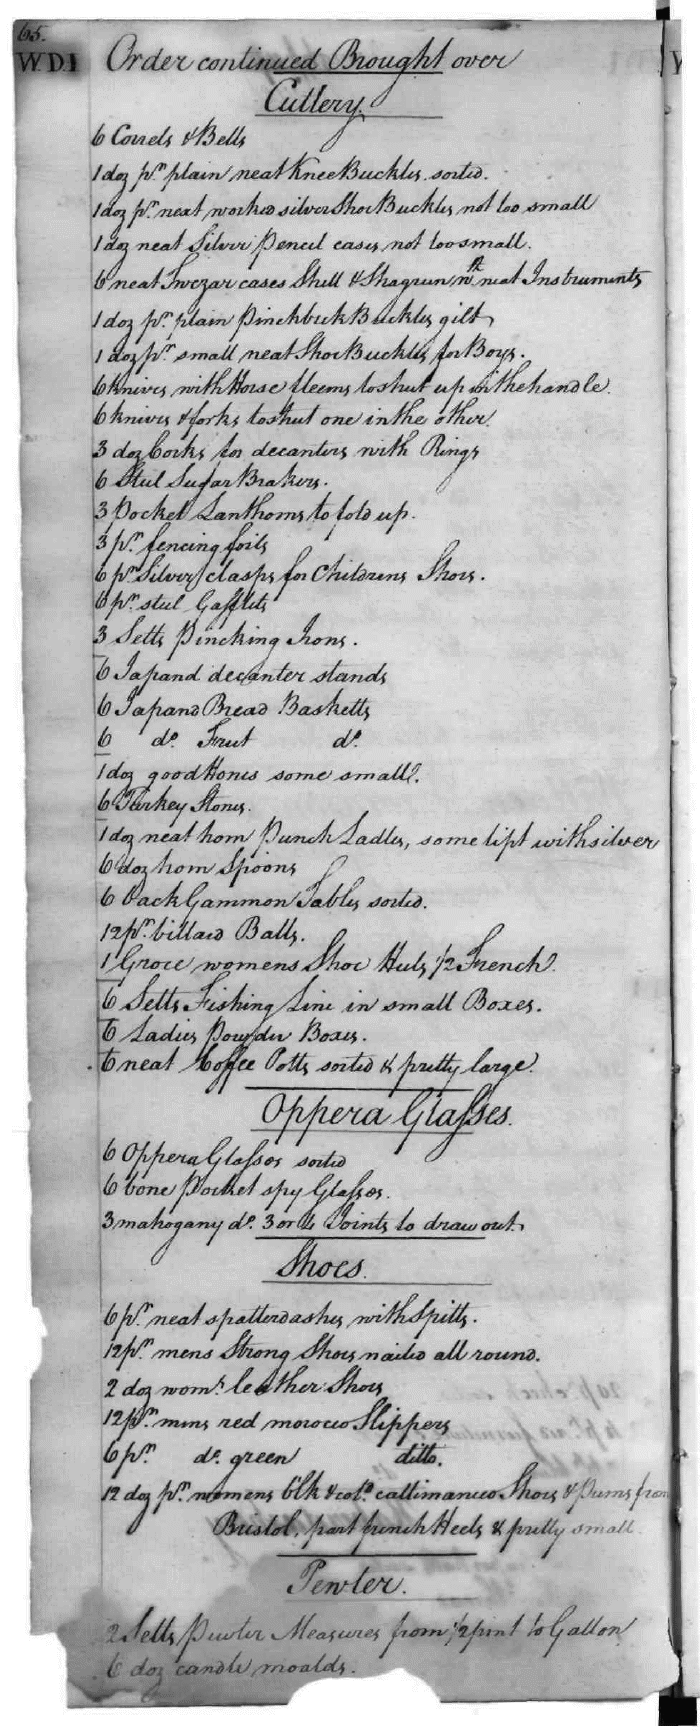 65.
W.D.I Order continued Brought over
Cutlery.
6 Correls & Bells
1 doz pr. plain neat Knee Buckles sorted.
1 doz pr. neat worked silver Shoe Buckles not too small
1 doz neat Silver Pencil cases not too small.
6 neat Twezar cases Shell & Shagreen wth neat Instruments
1 doz pr. plain Pinchbeck Buckles gilt
1 doz pr. small neat Shoe Buckles for Boys.
6 knives with Horse fleems to shut up in the handle.
6 knives & forks to shut one in the other.
3 doz Corks for decanters with Rings
6 Steel Sugar Brakers.
3 Pocket Lanthorns to fold up.
3 pr. fencing foils
6 pr. Silver clasps for Childrens Shoes.
6 pr. steel Gafflets
3 Setts Pincking Irons.
6 Japand decanter stands
6 Japand Bread Basketts
6 do. Frut do.
1 doz good Hones some small.
6 Turkey Stones.
1 doz neat horn Punch Ladles, some tipt with silver
6 doz horn Spoons
6 back Gammon Tables sorted.
12 pr. billard Balls.
1 Groce womens Shoe Heels, 1/2 French.
6 Setts Fishing Line in small Boxes.
6 Ladies Powder Boxes.
6 neat Coffee Potts sorted & pretty large.
Oppera Glasses.
6 Oppera Glasses sorted
6 bone Pocket spy Glasses.
3 mahogany do. 3 or 4 Joints to draw out.
Shoes.
6 pr. neat spatterdashes with Spitts.
12 pr. mens Strong Shoes nailed all round.
2 doz wom's leather Shoes
12 pr. mens red morocco Slippers
6 pr. do. green ditto.
12 doz pr. womens blk & cold. callimanco Shoes & Pums from
Bristol, part french Heels & pretty small
Pewter.
2 Setts Pewter Measures from 1/2 pint to Gallon
6 doz candle moalds.